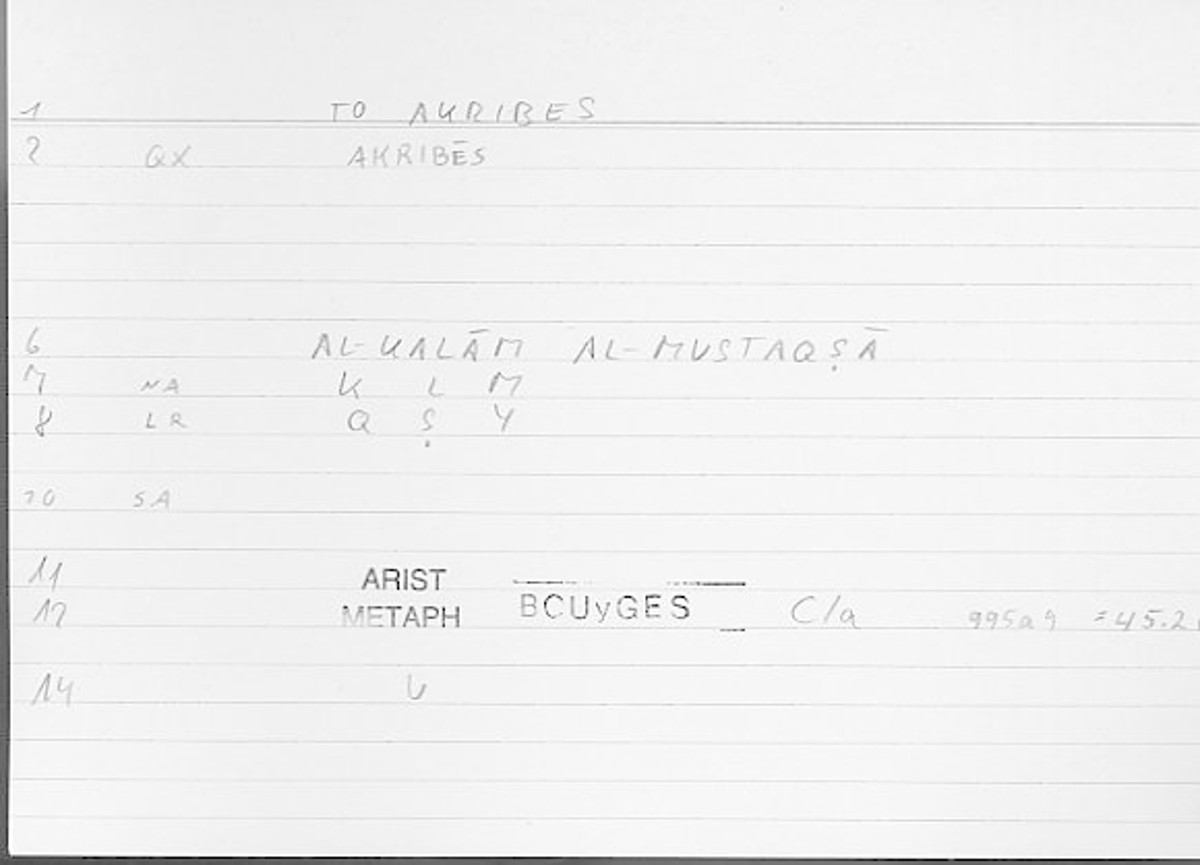 1 TO AKRIBES
2 QX AKRIBĒS
6 AL-KALĀM AL-MUSTAQṢĀ
7 NA K L M
8 LR Q Ṣ Y
10 SA
11 ARIST
12 METAPH BOUyGES C/a 995a9 =45.2
14 U